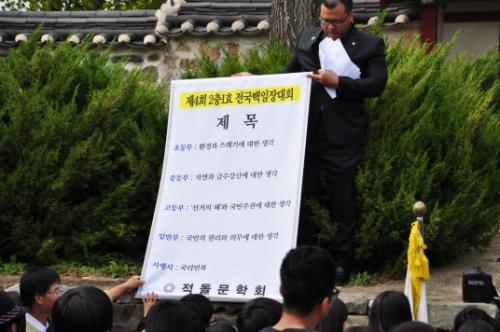 제4회 2충1효 전국백일장대회
제 목
초등부 : 환경과 쓰레기에 대한 생각
중등부 : 자연과 금수강산에 대한 생각
고등부 : '선거의 해'와 국민주권에 대한 생각
일반부 : 국민의 권리와 의무에 대한 생각
사행시 : 국리민복
적돌문학회